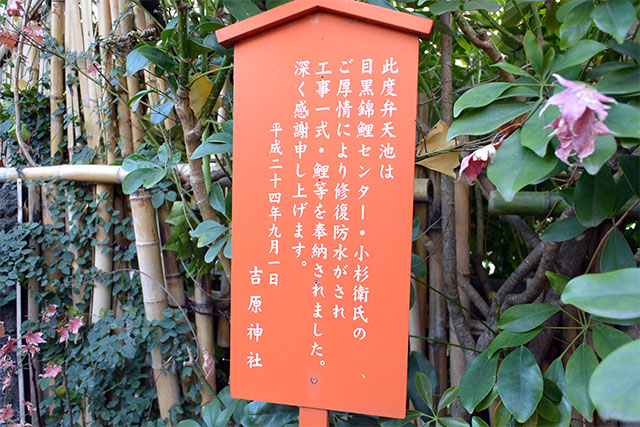 此度弁天池は
目黒錦鯉センター・小杉衛氏の
ご厚情により修復防水がされ、
工事一式・鯉等を奉納されました。
深く感謝申し上げます。
平成二十四年九月一日
吉原神社